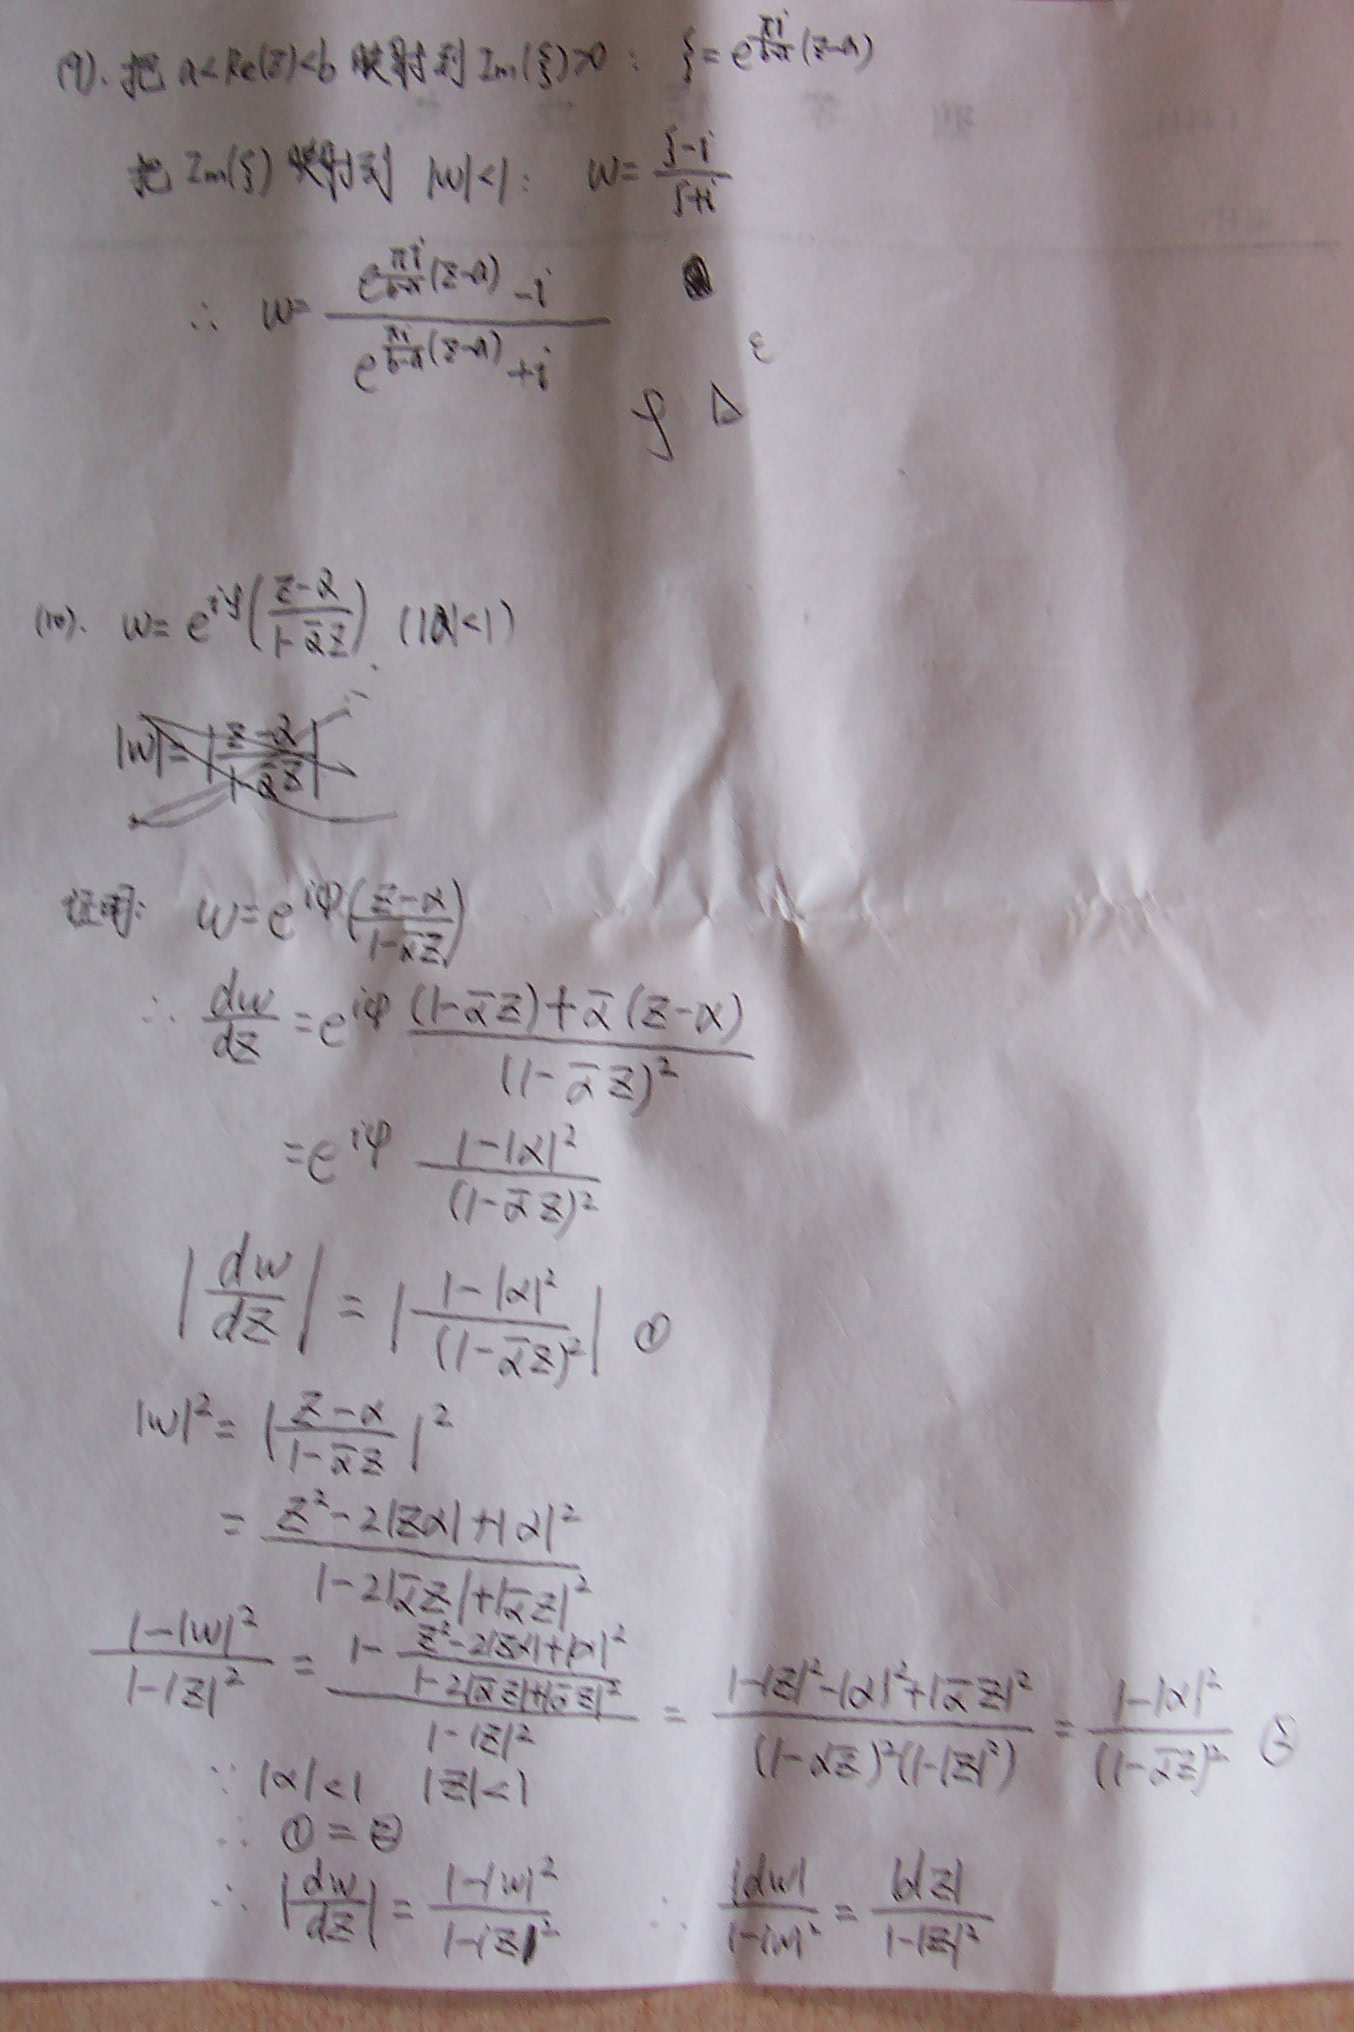 (9). 把 a<Re(z)<b 映射到 Im(ξ)>0 : ξ = e^{\frac{πi}{b-a}(z-a)}
把 Im(ξ) 映射到 |w|<1: w = \frac{ξ-i}{ξ+i}
∴ w = \frac{e^{\frac{πi}{b-a}(z-a)} -i}{e^{\frac{πi}{b-a}(z-a)} +i}
(10). w = e^{iφ}(\frac{z-α}{1-\bar{α}z}) (|α|<1)
|w| = |\frac{z-α}{1-\bar{α}z}|
证明: w = e^{iφ}(\frac{z-α}{1-\bar{α}z})
∴ \frac{dw}{dz} = e^{iφ} \frac{(1-\bar{α}z)+\bar{α}(z-α)}{(1-\bar{α}z)^2}
= e^{iφ} \frac{1-|α|^2}{(1-\bar{α}z)^2}
|\frac{dw}{dz}| = |\frac{1-|α|^2}{(1-\bar{α}z)^2}| ①
|w|^2 = |\frac{z-α}{1-\bar{α}z}|^2
= \frac{z^2-2|zα|+|α|^2}{1-2|\bar{α}z|+|\bar{α}z|^2}
\frac{1-|w|^2}{1-|z|^2} = \frac{1-\frac{z^2-2|zα|+|α|^2}{1-2|\bar{α}z|+|\bar{α}z|^2}}{1-|z|^2} = \frac{1-|z|^2-|α|^2+|\bar{α}z|^2}{(1-\bar{α}z)^2(1-|z|^2)} = \frac{1-|α|^2}{(1-\bar{α}z)^2} ②
∵ |α|<1 |z|<1
∴ ①=②
∴ |\frac{dw}{dz}| = \frac{1-|w|^2}{1-|z|^2} ∴ \frac{|dw|}{1-|w|^2} = \frac{|dz|}{1-|z|^2}